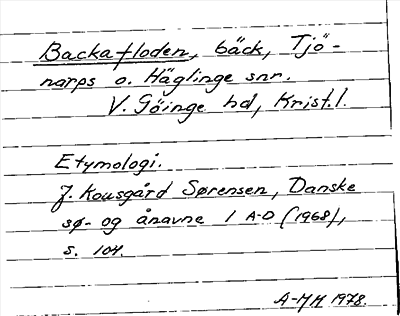 Backafloden, bäck, Tjö-
narps o. Häglinge snr.
V. Göinge hd, Krist. l.
Etymologi.
J. Kousgård Sørensen, Danske
sø- og ånavne 1 A-D (1968),
s. 104.
A-MH 1978.